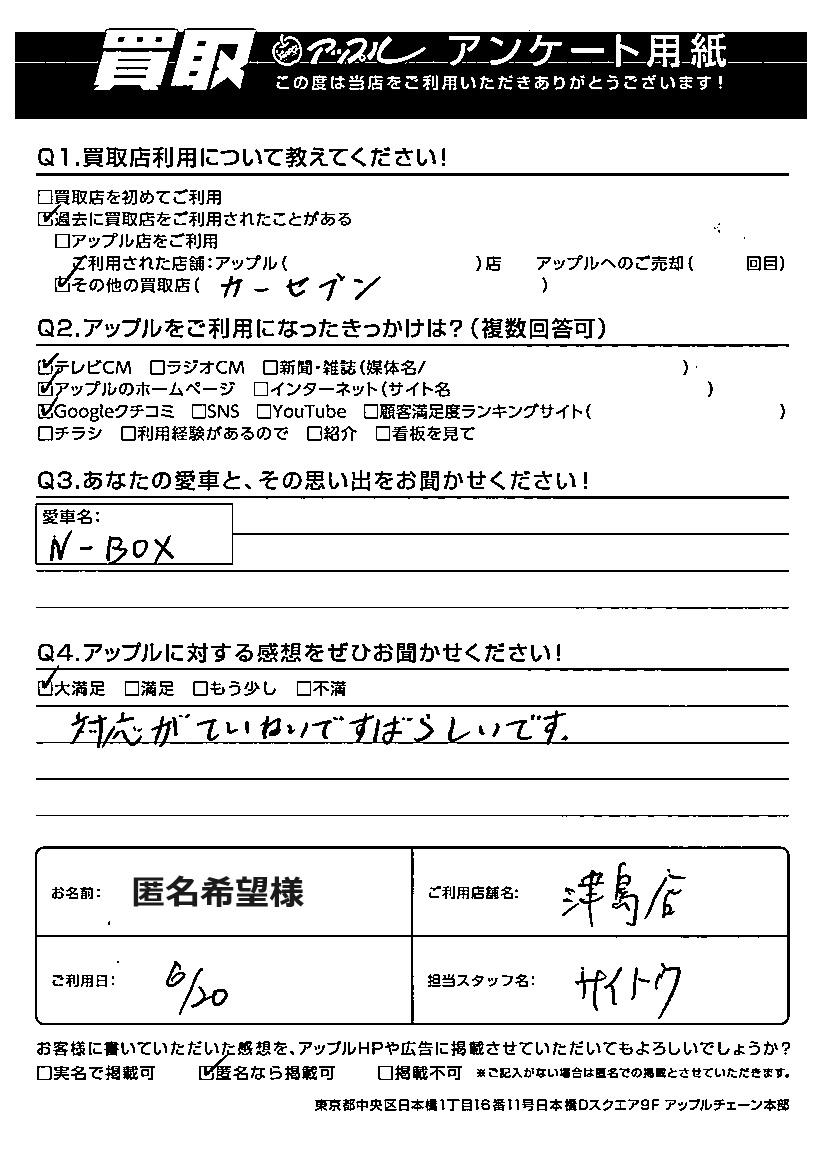 買取 アップル アンケート用紙
この度は当店をご利用いただきありがとうございます!
Q1.買取店利用について教えてください!
□買取店を初めてご利用
☑過去に買取店をご利用されたことがある
□アップル店をご利用
ご利用された店舗:アップル( )店 アップルへのご売却( 回目)
☑その他の買取店( カーセブン )
Q2.アップルをご利用になったきっかけは?(複数回答可)
☑テレビCM □ラジオCM □新聞・雑誌(媒体名/ )
☑アップルのホームページ □インターネット(サイト名 )
☑Googleクチコミ □SNS □YouTube □顧客満足度ランキングサイト( )
□チラシ □利用経験があるので □紹介 □看板を見て
Q3.あなたの愛車と、その思い出をお聞かせください!
愛車名:
N-BOX
Q4.アップルに対する感想をぜひお聞かせください!
☑大満足 □満足 □もう少し □不満
対応がていねいですばらしいです.
お名前: 匿名希望様 ご利用店舗名: 津島店
ご利用日: 6/20 担当スタッフ名: サイトウ
お客様に書いていただいた感想を、アップルHPや広告に掲載させていただいてもよろしいでしょうか?
□実名で掲載可 ☑匿名なら掲載可 □掲載不可 ※ご記入がない場合は匿名での掲載とさせていただきます。
東京都中央区日本橋1丁目16番11号日本橋Dスクエア9F アップルチェーン本部